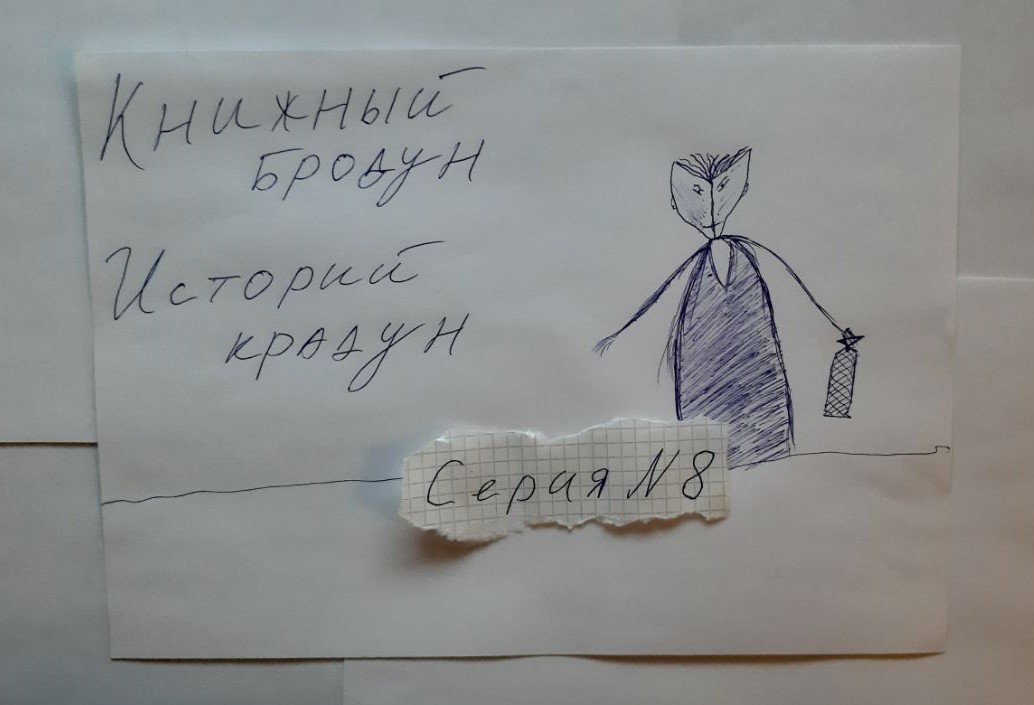 Книжный
бродун
Историй
крадун
Серия N8